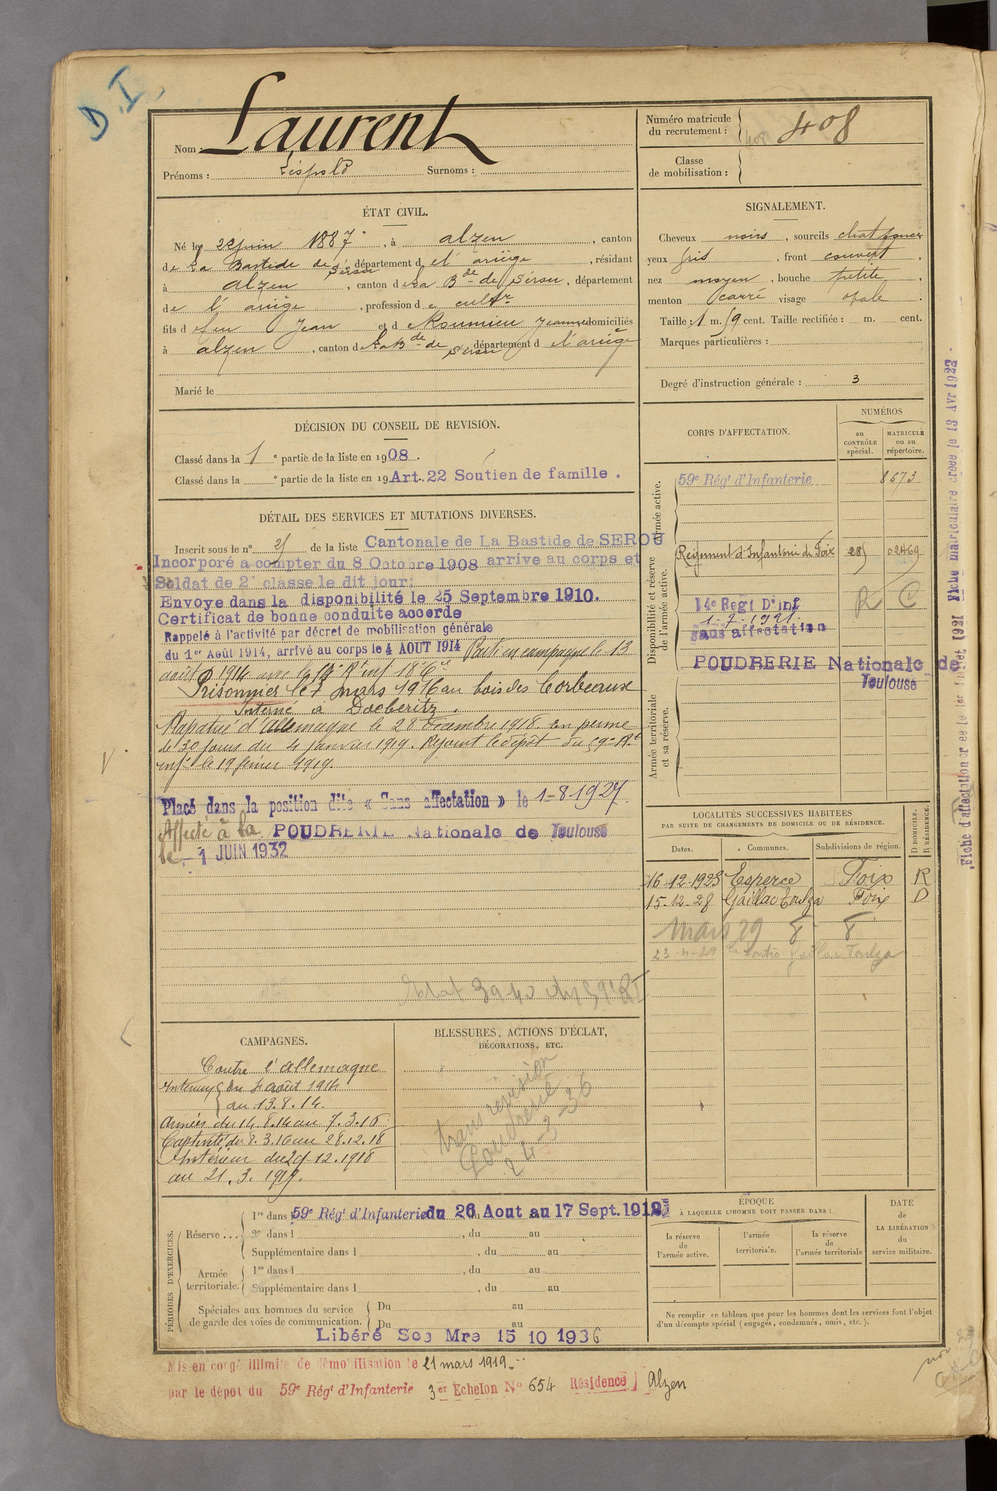 D.I.
Nom : Laurent
Prénoms : Léopold Surnoms :
Numéro matricule du recrutement : 408
Classe de mobilisation :
ÉTAT CIVIL.
Né le 22 juin 1887, à Alzen, canton
de La Bastide de Sérou, département de l'ariège, résidant
à Alzen, canton de La Bde de Sérou, département
de l'ariège, profession de cultr
fils de feu Jean et de Moumieu Jeanne domiciliés
à alzen, canton de La Bde de Sérou, département de l'ariège
Marié le
SIGNALEMENT.
Cheveux noirs, sourcils chat foncé
yeux gris, front couvert,
nez moyen, bouche petite
menton carré visage ovale.
Taille : 1 m. 59 cent. Taille rectifiée : m. cent.
Marques particulières :
Degré d'instruction générale : 3
DÉCISION DU CONSEIL DE REVISION.
Classé dans la 1e partie de la liste en 1908.
Classé dans la e partie de la liste en 19 Art. 22 Soutien de famille.
DÉTAIL DES SERVICES ET MUTATIONS DIVERSES.
Inscrit sous le n° de la liste Cantonale de La Bastide de SEROU
Incorporé à compter du 8 Octobre 1908 arrive au corps et
Soldat de 2e classe le dit jour:
Envoye dans la disponibilité le 25 Septembre 1910.
Certificat de bonne conduite accorde
Rappelé à l'activité par décret de mobilisation générale
du 1er Août 1914, arrivé au corps le 4 AOUT 1914 Parti en campagne le 13
août 1914 avec le
Prisonnier le 7 mars 1916 au bois des Corbeaux
Interné à Doeberitz.
Rapatrié d'Allemagne le 28 décembre 1918. En perme
de 30 jours du 4 janvier 1919. Rejoint le dépôt du 59e Rt
infie le 19 février 1919.
Placé dans la position dite « Sans affectation » le 1-8-1927.
Affecté à la POUDRERIE Nationale de Toulouse
le 1 JUIN 1932
Etat 39-40 du 59e RI
CORPS D'AFFECTATION.
NUMÉROS
au CONTRÔLE spécial.
MATRICULE ou au répertoire.
Armée active.
59e Régt d'Infanterie 8573
Disponibilité et réserve de l'armée active.
Régiment d'Infanterie de Foix 02469
R C
14e Regt D'inf
1.7.1921.
sans affectation
POUDRERIE Nationale de
Toulouse
Armée territoriale et sa réserve.
LOCALITÉS SUCCESSIVES HABITÉES
PAR SUITE DE CHANGEMENTS DE DOMICILE OU DE RÉSIDENCE.
Dates. Communes. Subdivisions de région. D DOMICILE. R RÉSIDENCE.
16-12-1923 Esperce Foix R
15-12-28 Gaillac Toulza Foix D
mars 29
23-4-29 Gaillac Toulza
CAMPAGNES.
Contre l'allemagne
Intérieur du 4 août 1914
au 13.8.14.
Armées du 14.8.14 au 7.3.16
Captivité du 8.3.16 au 28.12.18
Intérieur du 29.12.1918
au 21.3.1919.
BLESSURES, ACTIONS D'ÉCLAT,
DÉCORATIONS, ETC.
trans révision
Poudrerie
24-3-36
PÉRIODES D'EXERCICES.
Réserve ... 1re dans l 59e Régt d'Infanterie du 26 Aout au 17 Sept. 1912
2e dans l , du au
Supplémentaire dans l , du au
Armée territoriale. 1re dans l , du au
Supplémentaire dans l , du au
Spéciales aux hommes du service de garde des voies de communication. Du au
Du au
Libéré Sce Mre 15 10 1936
ÉPOQUE
À LAQUELLE L'HOMME DOIT PASSER DANS :
la réserve de l'armée active.
l'armée territoriale.
la réserve de l'armée territoriale
DATE de LA LIBÉRATION du service militaire.
Ne remplir ce tableau que pour les hommes dont les services font l'objet
d'un décompte spécial (engagés, condamnés, omis, etc.).
Mis en congé illimité de démobilisation le 21 mars 1919
par le dépôt du 59e Régt d'Infanterie 3er Echelon N° 654 Résidence Alzen
Fiche d'affectation créée le 1er Juillet 1921 Fiche matriculaire créée le 13 Avr 1922